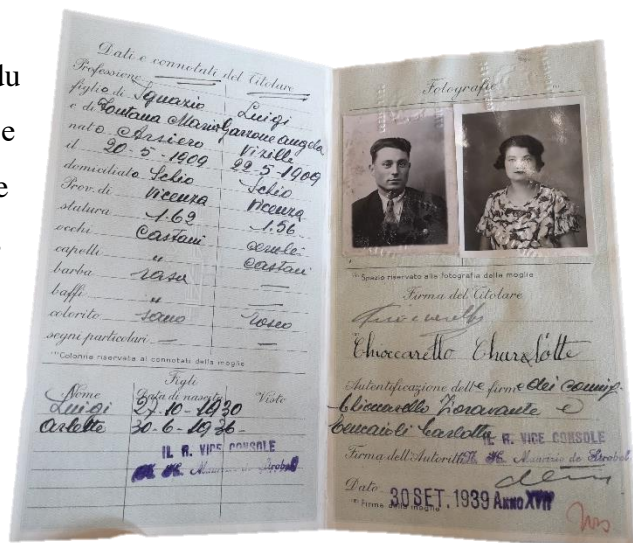 lu
e
e
Dati e connotati del Titolare
Professione
figlio di Ignazio Luigi
e di Fontana Maria Garrone Angela
nato Arsiero Vizille
il 20-5-1909 22-5-1909
domiciliato Schio Schio
Prov. di Vicenza Vicenza
statura 1.69 1.56
occhi Castani
capelli " castani
barba rasa —
baffi " —
colorito sano roseo
segni particolari — —
Colonna riservata ai connotati della moglie
Figli
Nome Data di nascita Visto
Luigi 27-10-1930
Arlette 30-6-1936-
IL R. VICE CONSOLE
Maurizio de Strobel
Fotografie
Spazio riservato alle fotografia della moglie
Firma del Titolare
Chioccarello Charlotte
Autentificazione delle firme dei coniug.
Chioccarello Fioravante e
Carlotta
IL R. VICE CONSOLE
Firma dell'Autorità Maurizio de Strobel
Data 30 SET. 1939 ANNO XVII
Firma della moglie